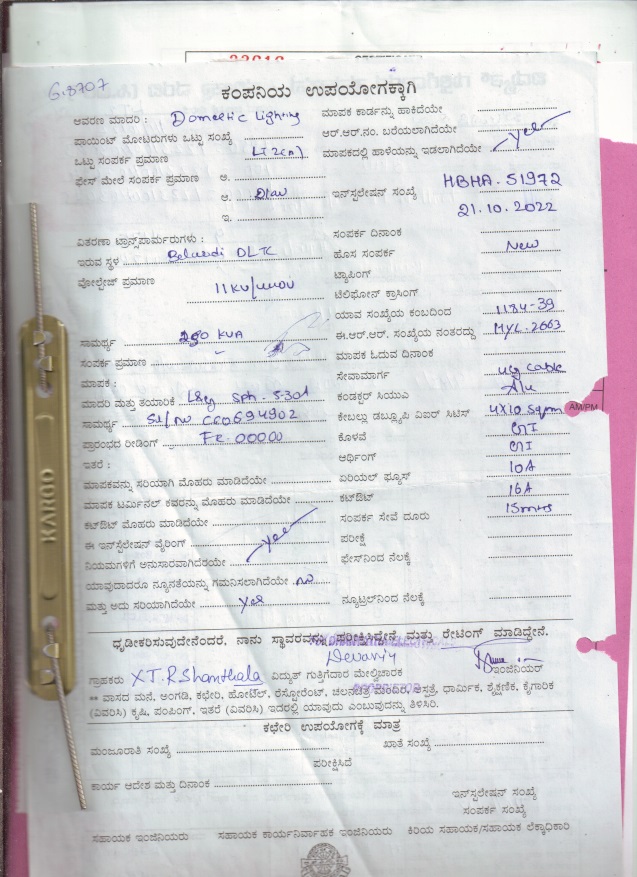 G.8707
ಕಂಪನಿಯ ಉಪಯೋಗಕ್ಕಾಗಿ
ಆವರಣ ಮಾದರಿ : Domestic Lighting
ಮಾಪಕ ಕಾರ್ಡನ್ನು ಹಾಕಿದೆಯೇ
ಪಾಯಿಂಟ್ ಮೋಟರುಗಳು ಒಟ್ಟು ಸಂಖ್ಯೆ
ಆರ್.ಆರ್.ನಂ. ಬರೆಯಲಾಗಿದೆಯೇ
ಒಟ್ಟು ಸಂಪರ್ಕ ಪ್ರಮಾಣ LT2(a)
ಮಾಪಕದಲ್ಲಿ ಹಾಳೆಯನ್ನು ಇಡಲಾಗಿದೆಯೇ yes
ಫೇಸ್ ಮೇಲೆ ಸಂಪರ್ಕ ಪ್ರಮಾಣ ಆ.
ಆ.
ಇನ್‌ಸ್ಟಲೇಷನ್ ಸಂಖ್ಯೆ HBHA-51972
ಇ.
21.10.2022
ವಿತರಣಾ ಟ್ರಾನ್ಸ್‌ಪಾರ್ಮರುಗಳು :
ಸಂಪರ್ಕ ದಿನಾಂಕ
ಇರುವ ಸ್ಥಳ Belavadi DLTC
ಹೊಸ ಸಂಪರ್ಕ New
ವೋಲ್ಟೇಜ್ ಪ್ರಮಾಣ 11KV/440V
ಟ್ಯಾಪಿಂಗ್
ಟೆಲಿಫೋನ್ ಕ್ರಾಸಿಂಗ್
ಯಾವ ಸಂಖ್ಯೆಯ ಕಂಬದಿಂದ 1184-39
ಸಾಮರ್ಥ್ಯ 250 KVA
ಈ.ಆರ್.ಆರ್. ಸಂಖ್ಯೆಯ ನಂತರದ್ದು MYL-2663
ಸಂಪರ್ಕ ಪ್ರಮಾಣ
ಮಾಪಕ ಓದುವ ದಿನಾಂಕ
ಮಾಪಕ :
ಸೇವಾಮಾರ್ಗ ug cable
ಮಾದರಿ ಮತ್ತು ತಯಾರಿಕೆ L&G Sph-5-30A
ಕಂಡಕ್ಟರ್ ಸಿಯುಎ
ಸಾಮರ್ಥ್ಯ Sl/no CC0694902
ಕೇಬಲ್ಲು ಡಬ್ಲ್ಯೂಪಿ ವಿಐರ್ ಸಿಟಿಸ್ 4X10 Sqmm
AM/PM
ಪ್ರಾರಂಭದ ರೀಡಿಂಗ್ FR-00000
ಕೊಳವೆ GI
ಇತರೆ :
ಆರ್ಥಿಂಗ್ GI
ಮಾಪಕವನ್ನು ಸರಿಯಾಗಿ ಮೊಹರು ಮಾಡಿದೆಯೇ
ಏರಿಯಲ್ ಫ್ಯೂಸ್ 10A
ಮಾಪಕ ಟರ್ಮಿನಲ್ ಕವರನ್ನು ಮೊಹರು ಮಾಡಿದೆಯೇ
ಕಟ್‌ಔಟ್ 16A
ಕಟ್‌ಔಟ್ ಮೊಹರು ಮಾಡಿದೆಯೇ
ಸಂಪರ್ಕ ಸೇವೆ ದೂರು 15mtrs
ಈ ಇನ್‌ಸ್ಟಲೇಷನ್ ವೈರಿಂಗ್ yes
ಪರೀಕ್ಷೆ
ನಿಯಮಗಳಿಗೆ ಅನುಸಾರವಾಗಿದೆರೆಯೇ
ಫೇಸ್‌ನಿಂದ ನೆಲಕ್ಕೆ
ಯಾವುದಾದರೂ ನ್ಯೂನತೆಯನ್ನು ಗಮನಿಸಲಾಗಿದೆಯೇ no
ಮತ್ತು ಅದು ಸರಿಯಾಗಿದೆಯೇ yes
ನ್ಯೂಟ್ರಲ್‌ನಿಂದ ನೆಲಕ್ಕೆ
ಧೃಡೀಕರಿಸುವುದೇನೆಂದರೆ, ನಾನು ಸ್ಥಾವರವನ್ನು ಪರೀಕ್ಷಿಸಿದ್ದೇನೆ ಮತ್ತು ರೇಟಿಂಗ್ ಮಾಡಿದ್ದೇನೆ.
ಗ್ರಾಹಕರು X T.R Shanthala ವಿದ್ಯುತ್ ಗುತ್ತಿಗೆದಾರ ಮೇಲ್ವಿಚಾರಕ ಇಂಜಿನಿಯರ್
** ವಾಸದ ಮನೆ, ಅಂಗಡಿ, ಕಛೇರಿ, ಹೋಟೆಲ್, ರೆಸ್ಟೋರೆಂಟ್, ಚಲನಚಿತ್ರ ಮಂದಿರ, ಆಸ್ಪತ್ರೆ, ಧಾರ್ಮಿಕ, ಶೈಕ್ಷಣಿಕ, ಕೈಗಾರಿಕೆ
(ವಿವರಿಸಿ) ಕೃಷಿ, ಪಂಪಿಂಗ್, ಇತರೆ (ವಿವರಿಸಿ) ಇದರಲ್ಲಿ ಯಾವುದು ಎಂಬುವುದನ್ನು ತಿಳಿಸಿರಿ.
ಕಛೇರಿ ಉಪಯೋಗಕ್ಕೆ ಮಾತ್ರ
ಮಂಜೂರಾತಿ ಸಂಖ್ಯೆ
ಖಾತೆ ಸಂಖ್ಯೆ
ಪರೀಕ್ಷಿಸಿದೆ
ಕಾರ್ಯ ಆದೇಶ ಮತ್ತು ದಿನಾಂಕ
ಇನ್‌ಸ್ಟಲೇಷನ್ ಸಂಖ್ಯೆ
ಸಂಪರ್ಕ ಸಂಖ್ಯೆ
ಸಹಾಯಕ ಇಂಜಿನಿಯರು ಸಹಾಯಕ ಕಾರ್ಯನಿರ್ವಾಹಕ ಇಂಜಿನಿಯರು ಕಿರಿಯ ಸಹಾಯಕ/ಸಹಾಯಕ ಲೆಕ್ಕಾಧಿಕಾರಿ